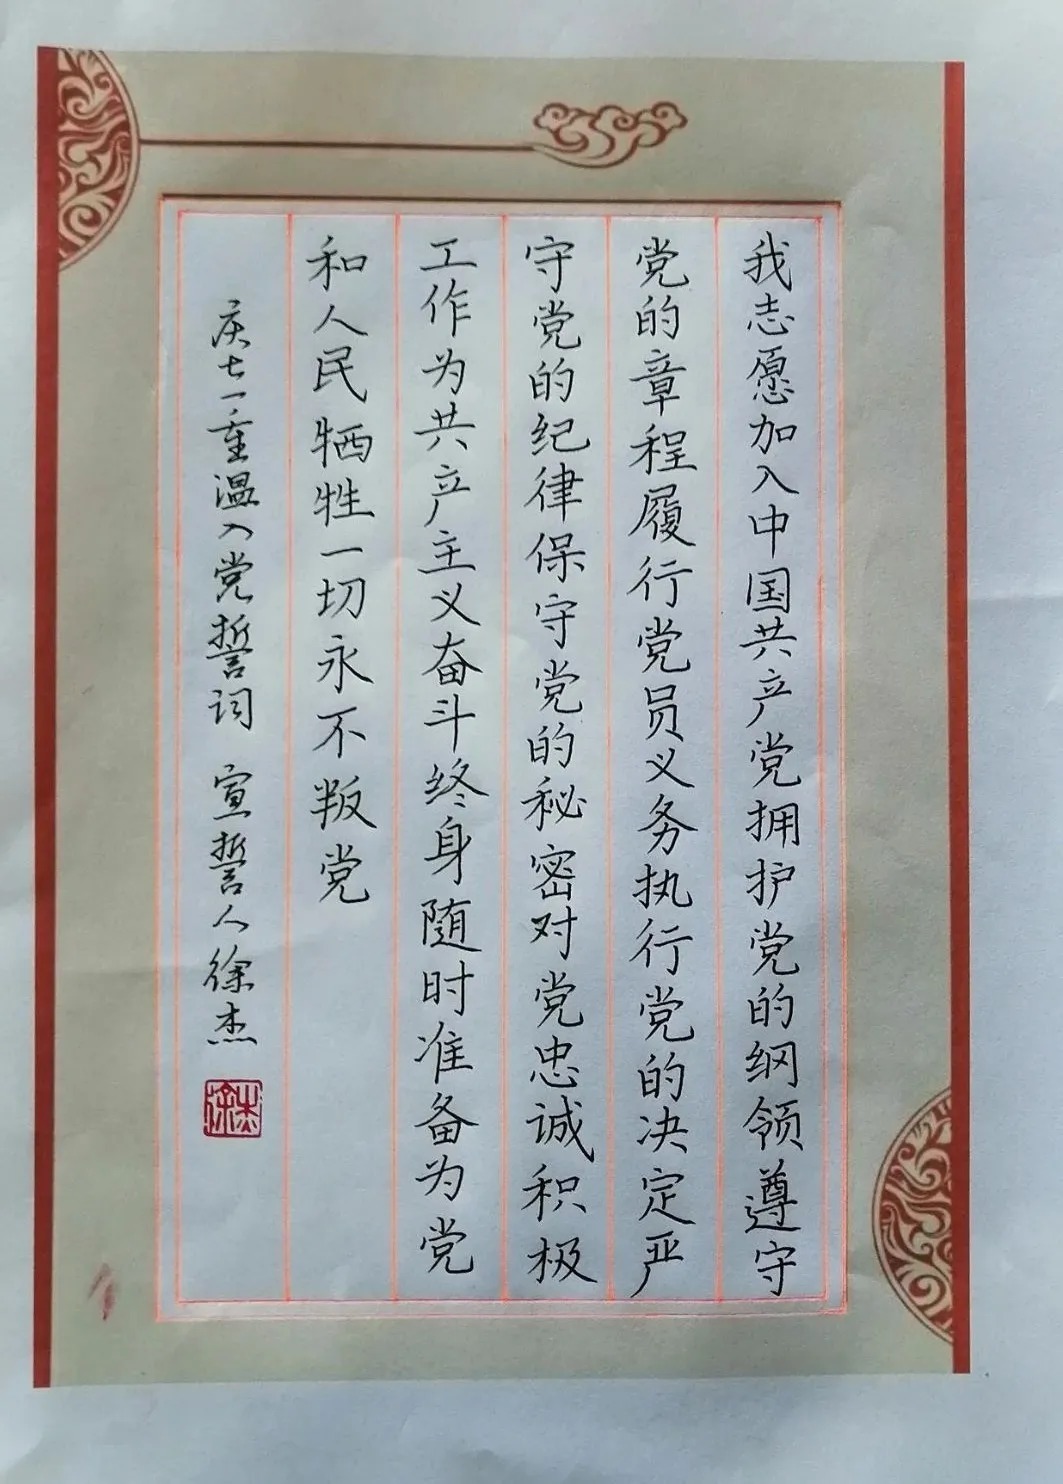 我志愿加入中国共产党拥护党的纲领遵守
党的章程履行党员义务执行党的决定严
守党的纪律保守党的秘密对党忠诚积极
工作为共产主义奋斗终身随时准备为党
和人民牺牲一切永不叛党
庆七一重温入党誓词 宣誓人徐杰
徐杰